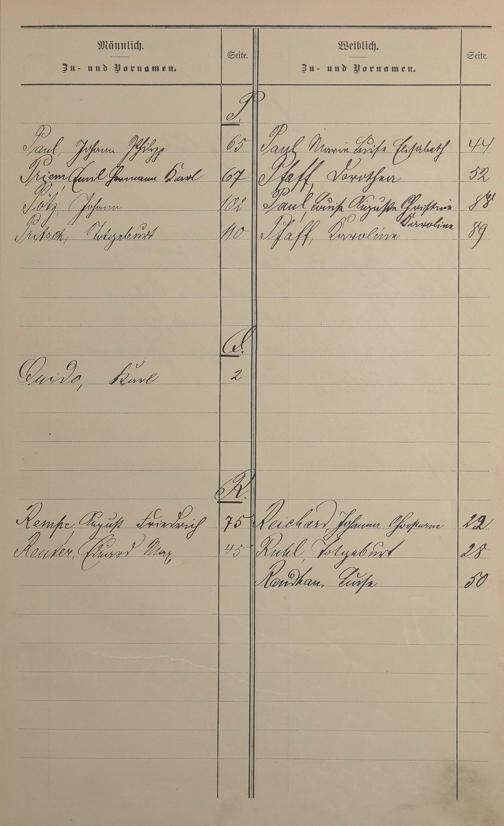 Männlich.
Zu- und Vornamen.
Seite.
Weiblich.
Zu- und Vornamen.
Seite.
P.
Paul Johann Philipp 65 Paul Marie Luise Elisabeth 44
Priem Emil Hermann Karl 67 Pfaff, Dorothea 52
Pötz, Johann 102 Paul Luise Auguste Christine 88
Karoline
Totgeburt 110 Pfaff, Karoline 89
Q.
Karl 2
R.
Rempe, August Friedrich 75 Reichard, Johanna 22
Reuter, Eduard Max 45 Ruhl, Totgeburt 28
Luise 50